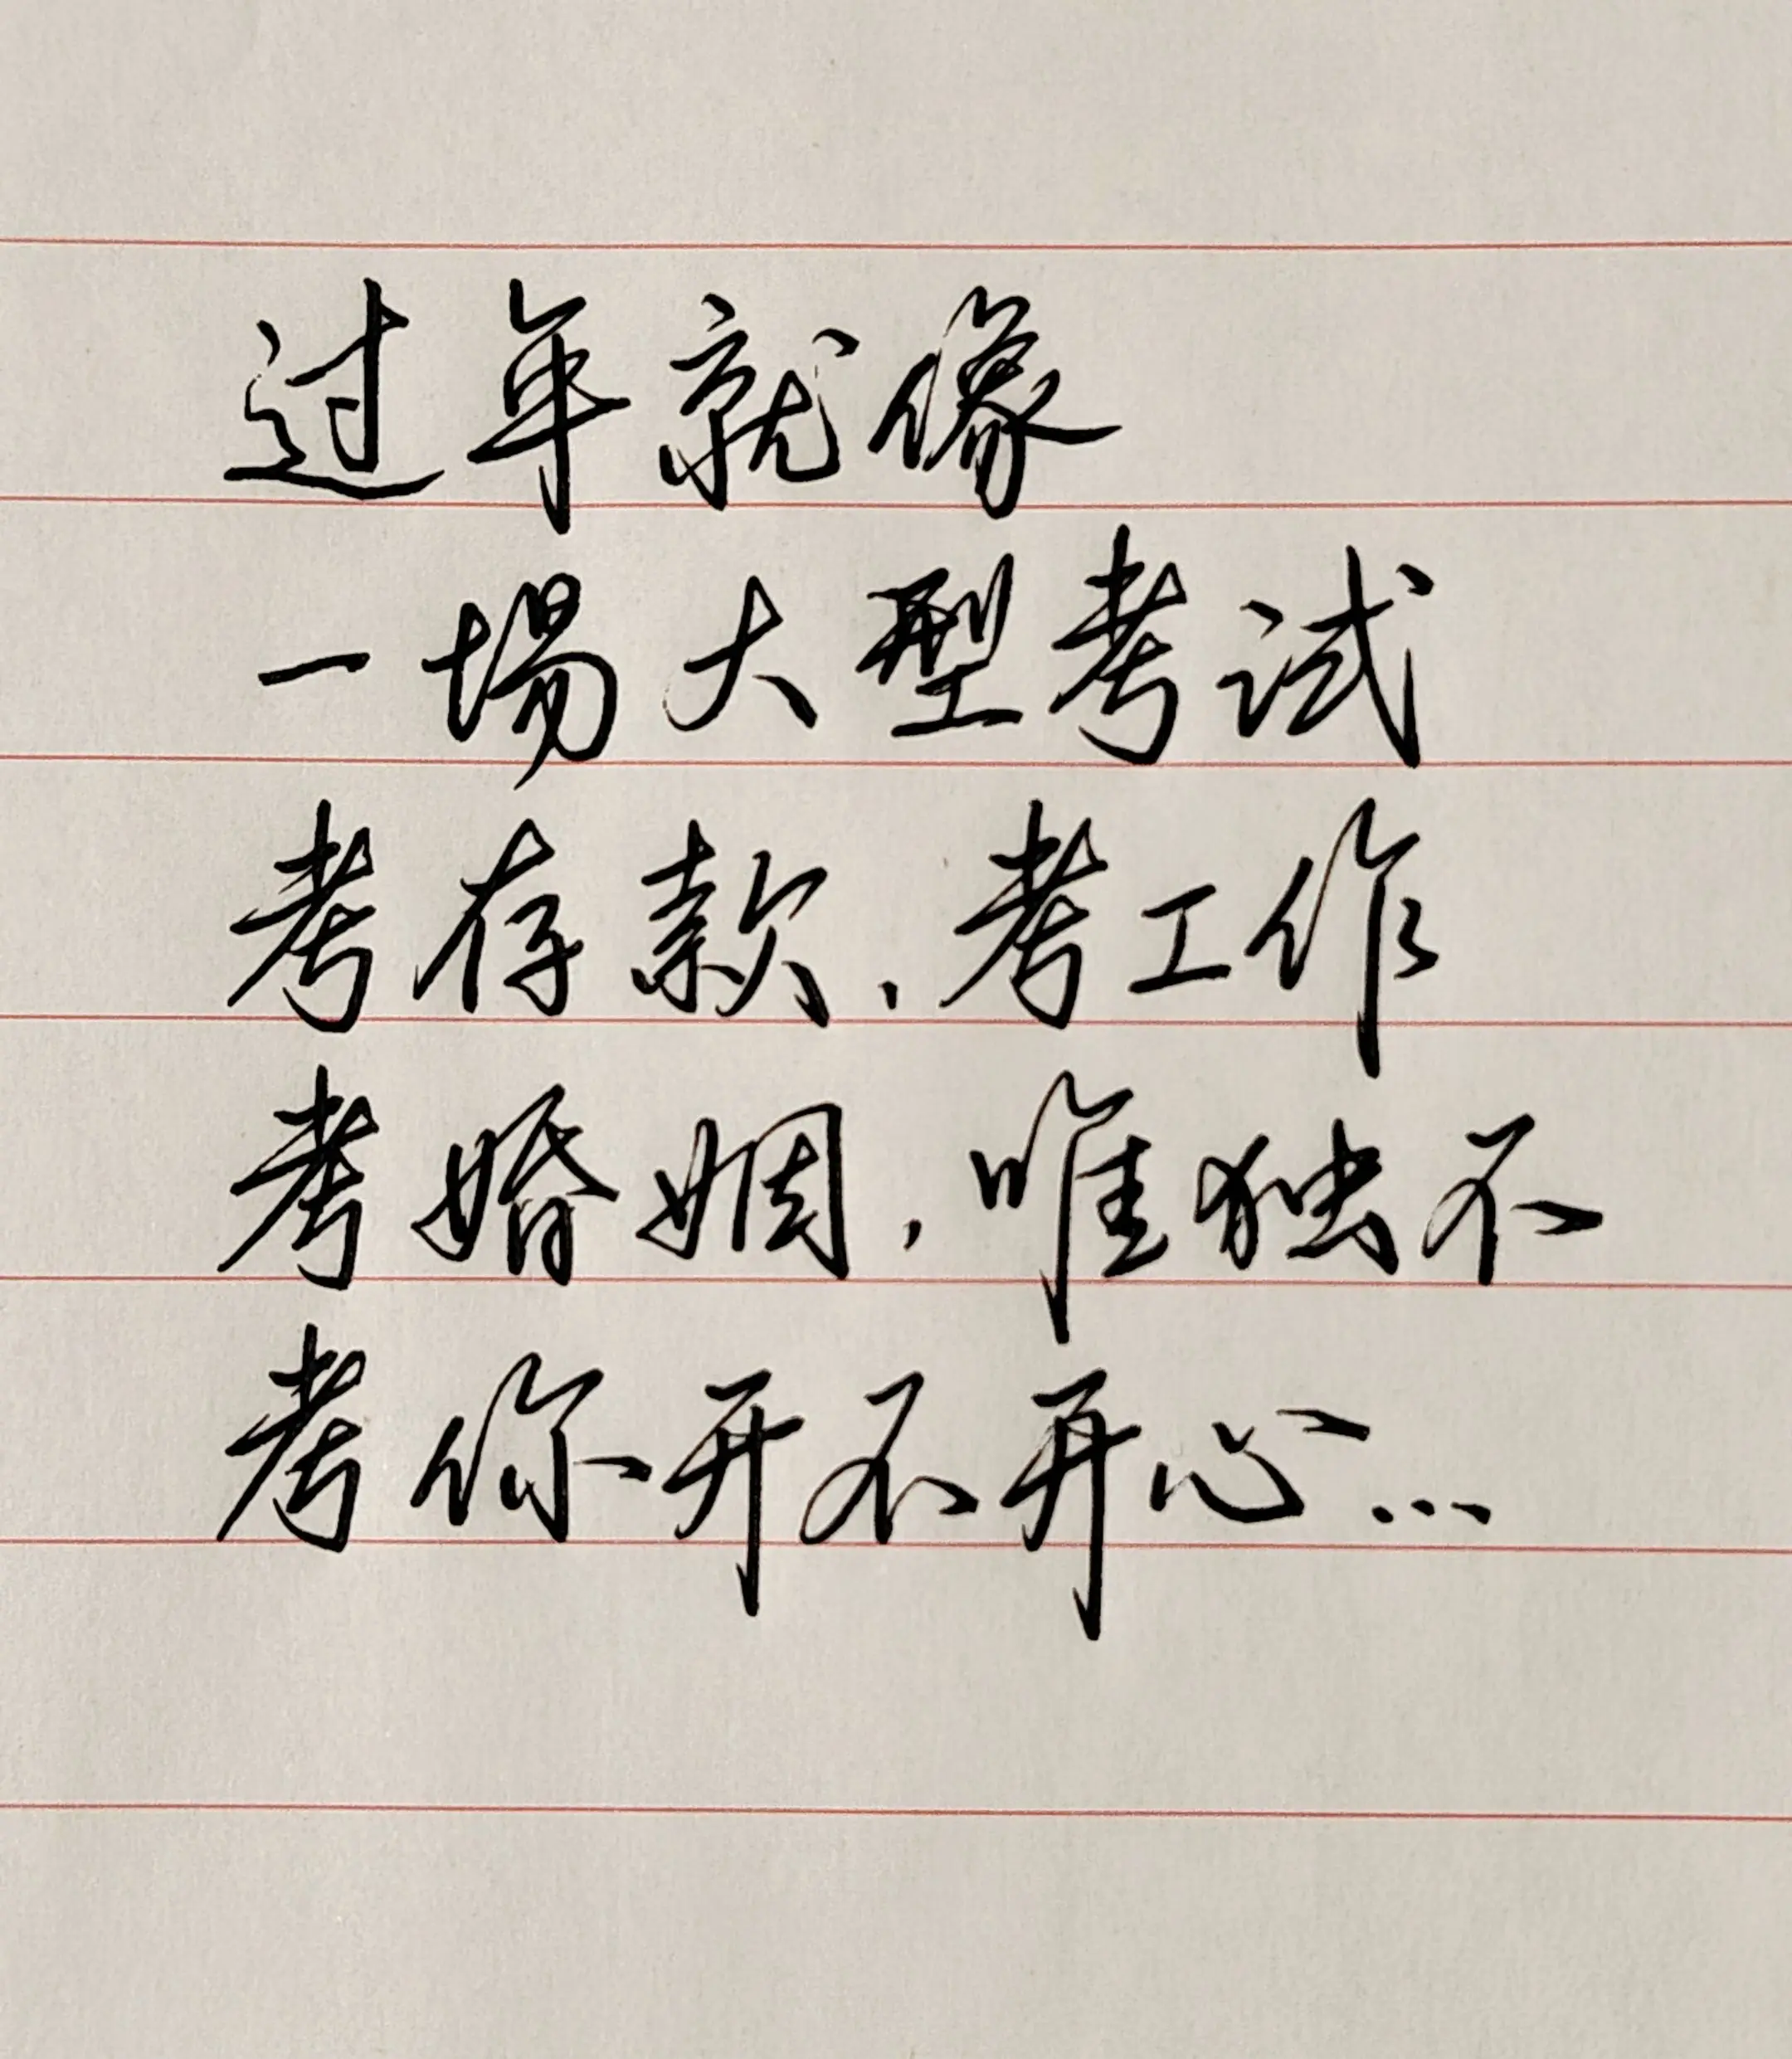 过年就像
一場大型考试
考存款，考工作
考婚姻，唯独不
考你开不开心...